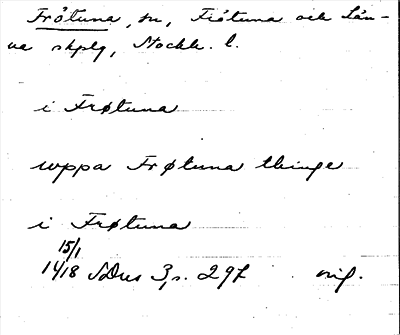 Frötuna, sn, Frötuna och Län-
na skplg, Stockh. l.
i Frøtuna
uppa Frøtuna thinge
i Frøtuna
15/1
1418 SDns 3, s. 297 orig.